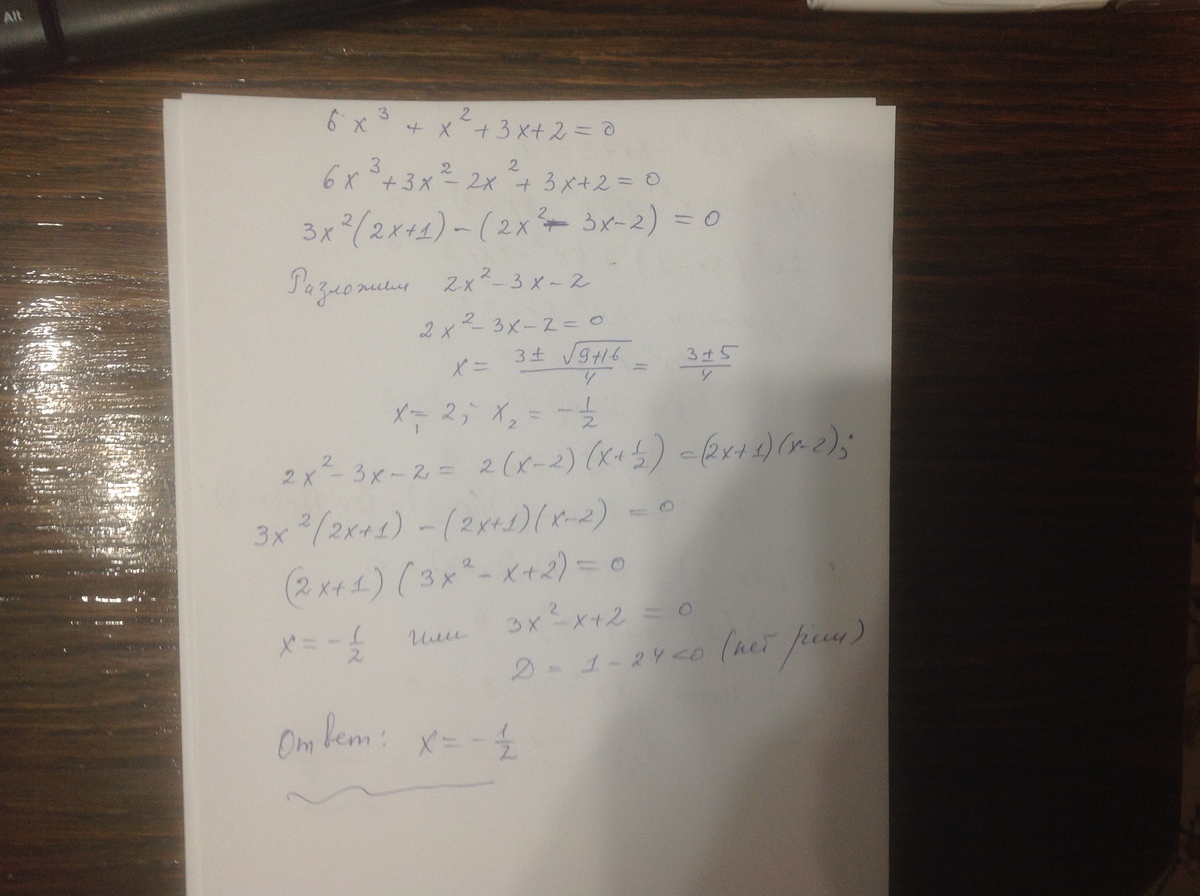 Alt
6x³ + x² + 3x + 2 = 0
6x³ + 3x² - 2x² + 3x + 2 = 0
3x²(2x+1) - (2x² - 3x - 2) = 0
Разложим 2x² - 3x - 2
2x² - 3x - 2 = 0
x = (3 ± √(9+16))/4 = (3 ± 5)/4
x₁ = 2; x₂ = -1/2
2x² - 3x - 2 = 2(x-2)(x+1/2) = (2x+1)(x-2);
3x²(2x+1) - (2x+1)(x-2) = 0
(2x+1)(3x² - x + 2) = 0
x = -1/2 или 3x² - x + 2 = 0
D = 1 - 24 < 0 (нет реш)
Ответ: x = -1/2